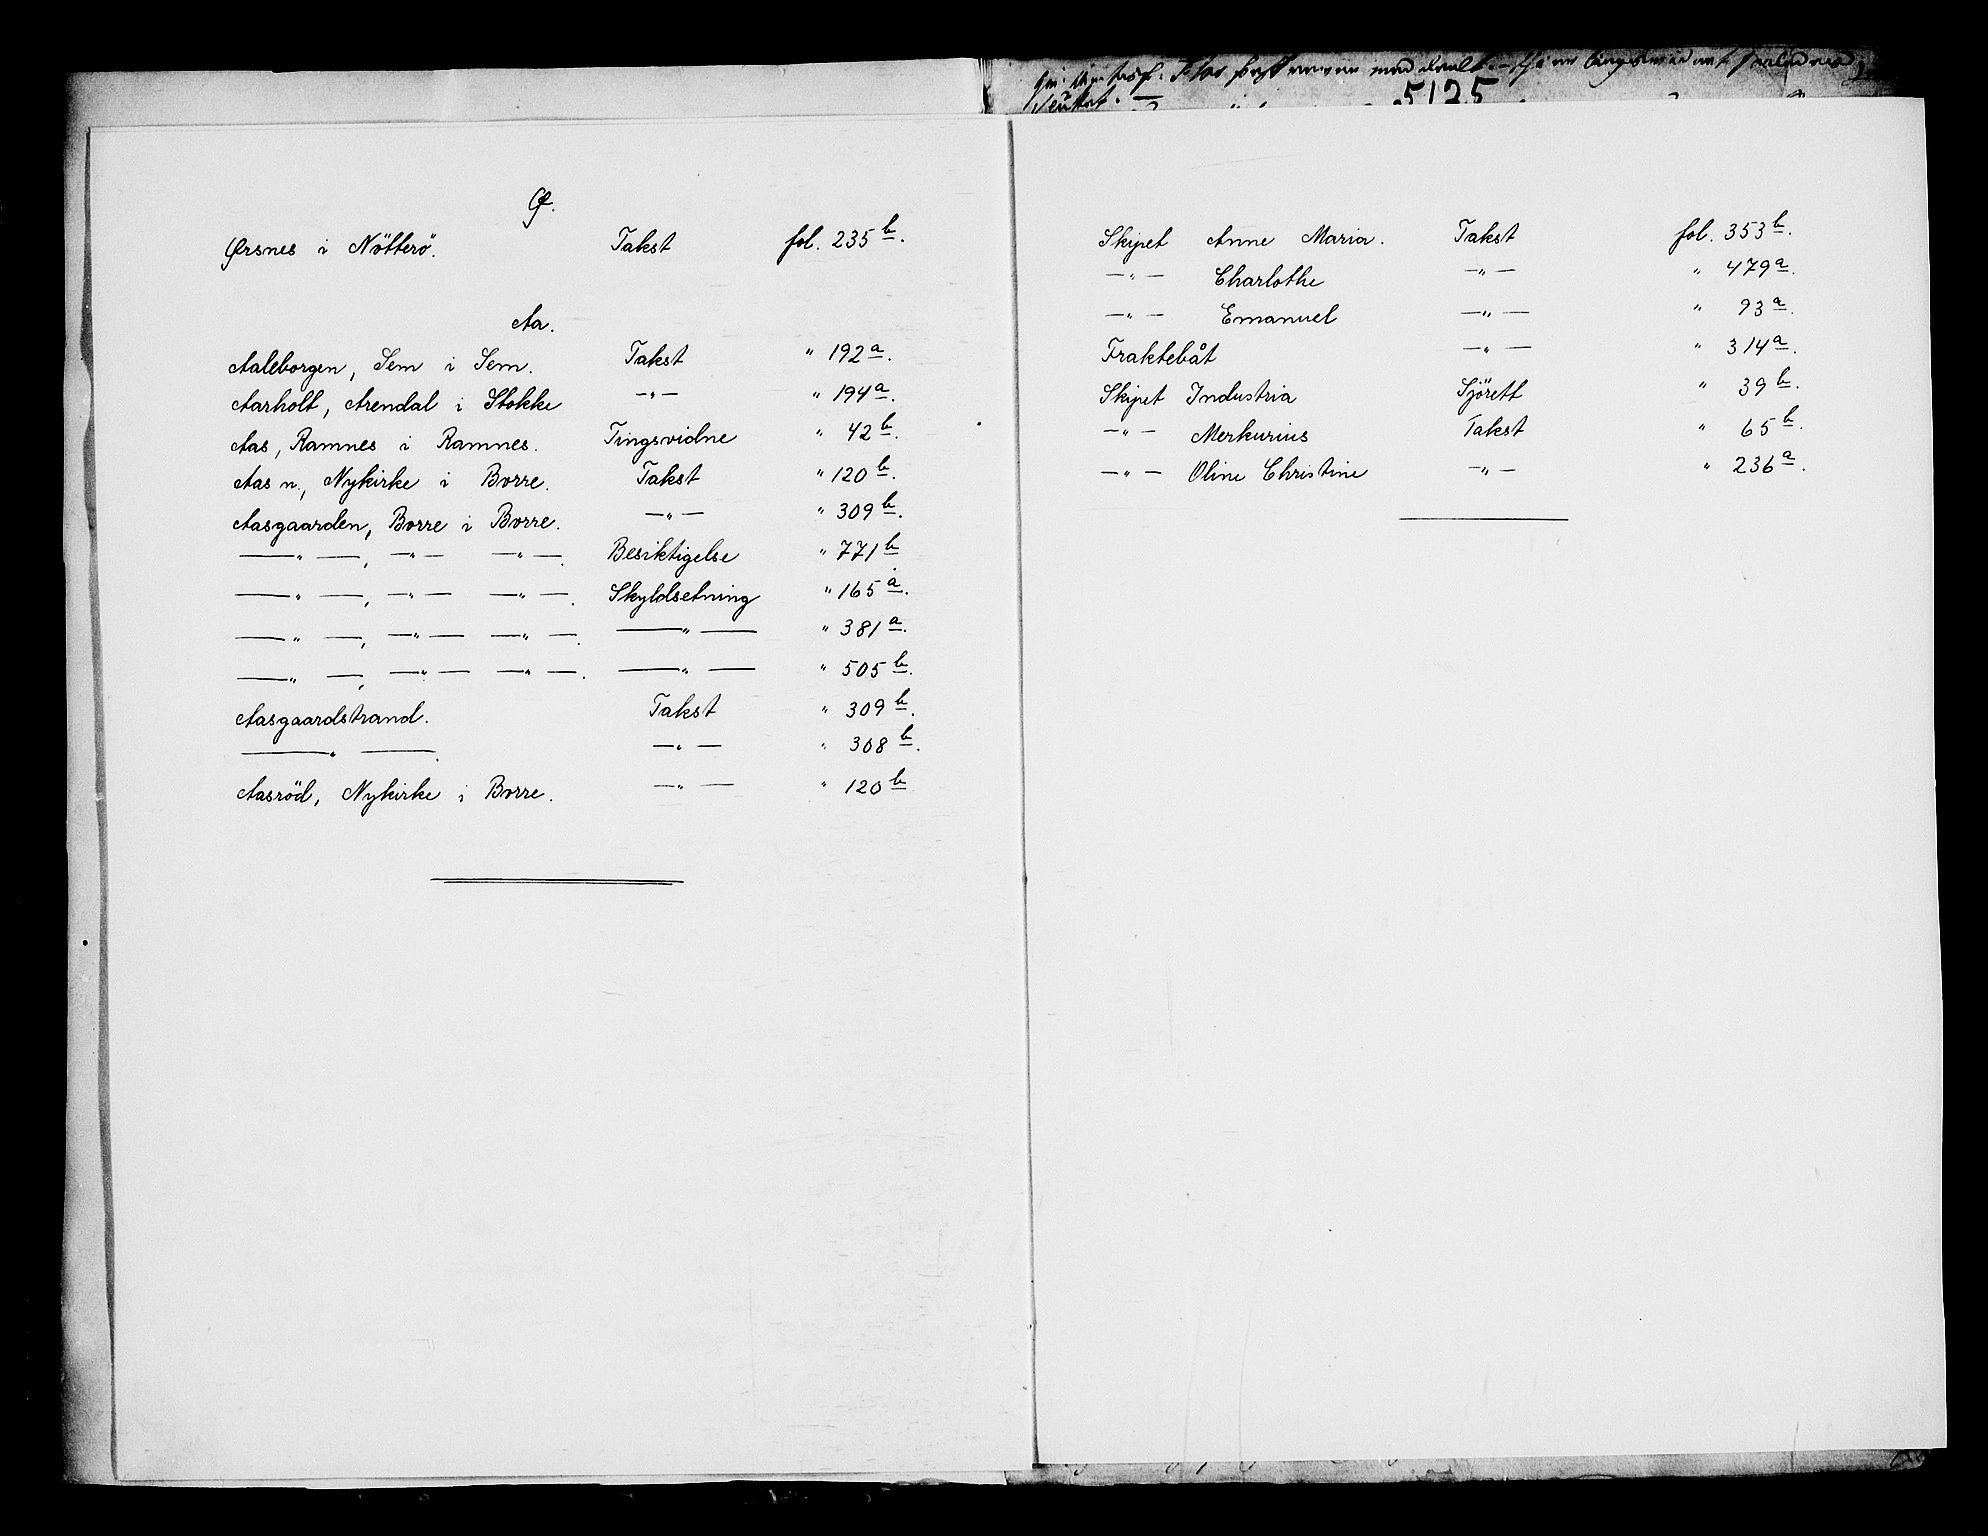 Ø.
Ørsnes i Nötterö. Takst fol. 235 b.
Aa.
Aaleborgen, Sem i Sem. Takst " 192 a.
Aarholt, Arendal i Stokke —"— " 194 a.
Aas, Ramnes i Ramnes. Tingsvidne " 42 b.
Aas n., Nykirke i Borre. Takst " 120 b.
Aasgaarden, Borre i Borre. —"— " 309 b.
—"—, —"— —"—. Besiktigelse " 771 b
—"—, —"— —"—. Skyldsetning " 165 a.
—"—, —"— —"—. —"— " 381 a.
—"—, —"— —"—. —"— " 505 b.
Aasgaardstrand. Takst " 309 b.
—"—. —"— " 308 b.
Aasröd, Nykirke i Borre. —"— " 120 b
5125
Skipet Anne Maria. Takst fol. 353 b.
—"— Charlothe —"— " 479 a.
—"— Emanuel —"— " 93 a.
Fraktebåt —"— " 314 a.
Skipet Industria Sjörett " 39 b.
—"— Merkurius Takst " 65 b.
—"— Oline Christine —"— " 236 a.